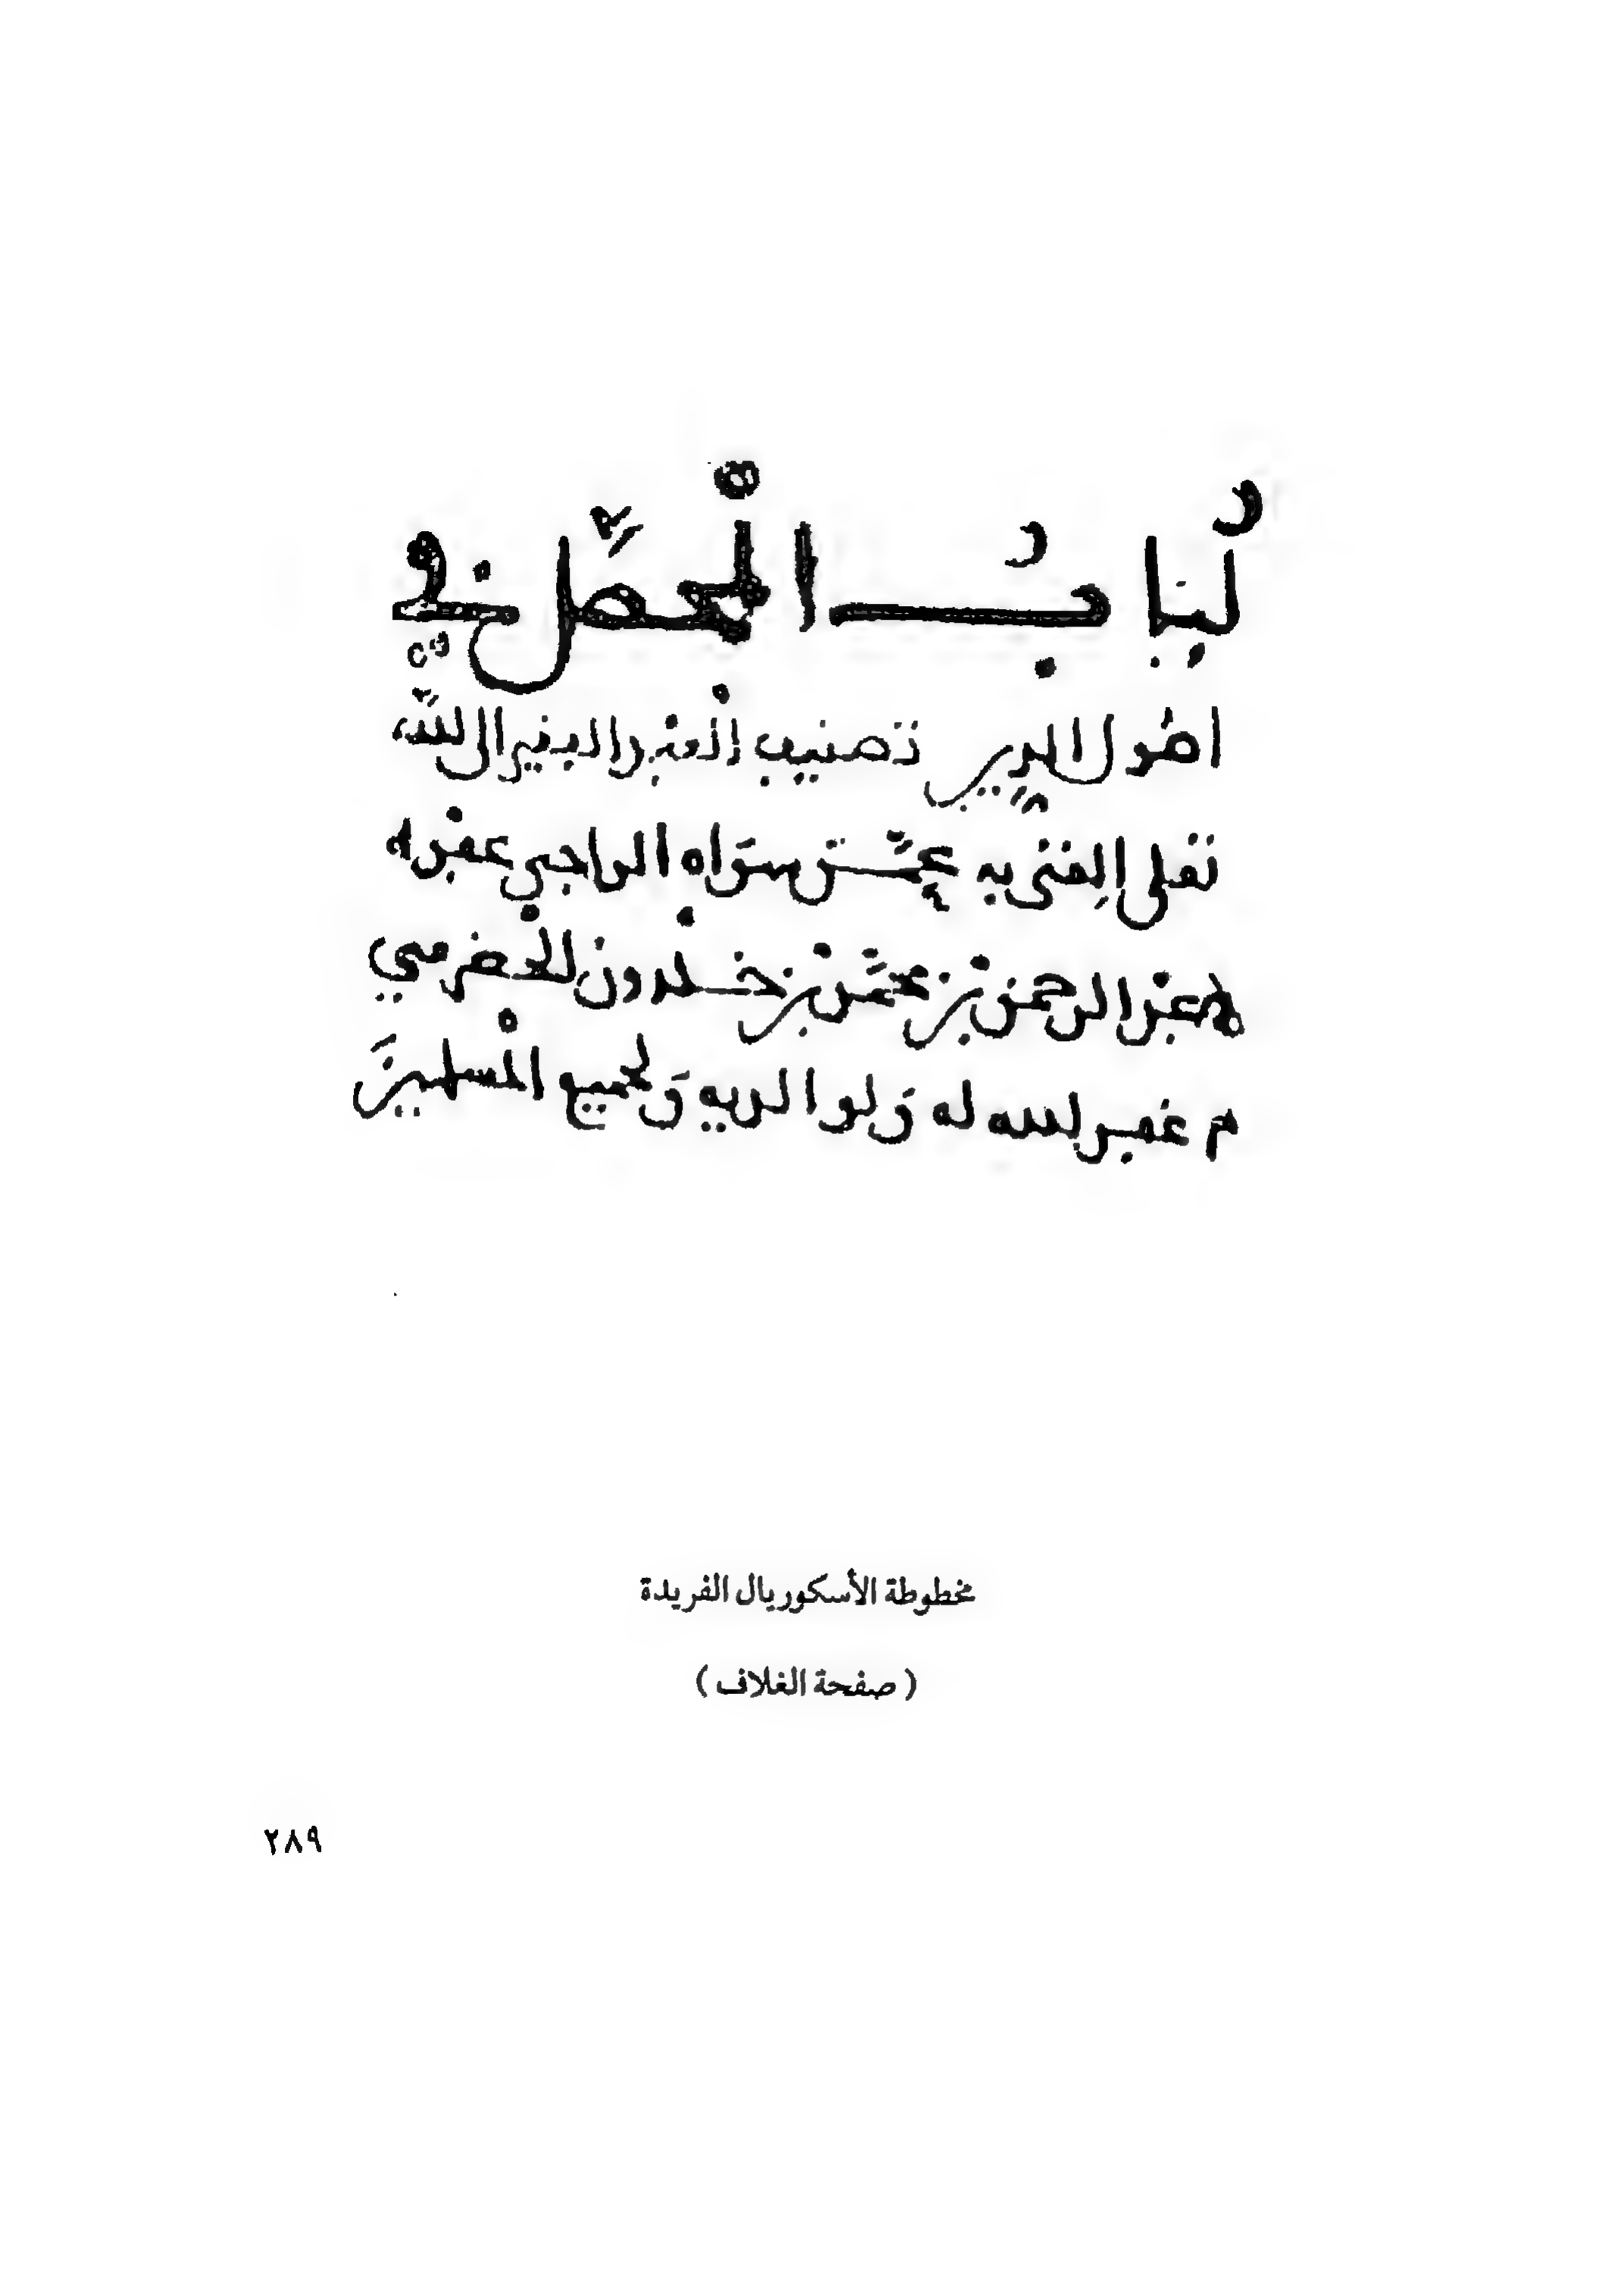 لباب المحصل في
اصول الدين تصنيف العبد الفقير الى الله
تعلى الغنى به عمن سواه الراجي عفوه
عبد الرحمن بن محمد بن خلدون الحضرمي
غفر الله له ولوالديه ولجميع المسلمين
مخطوطة الأسكوريال الفريدة
( صفحة الغلاف )
٢٨٩